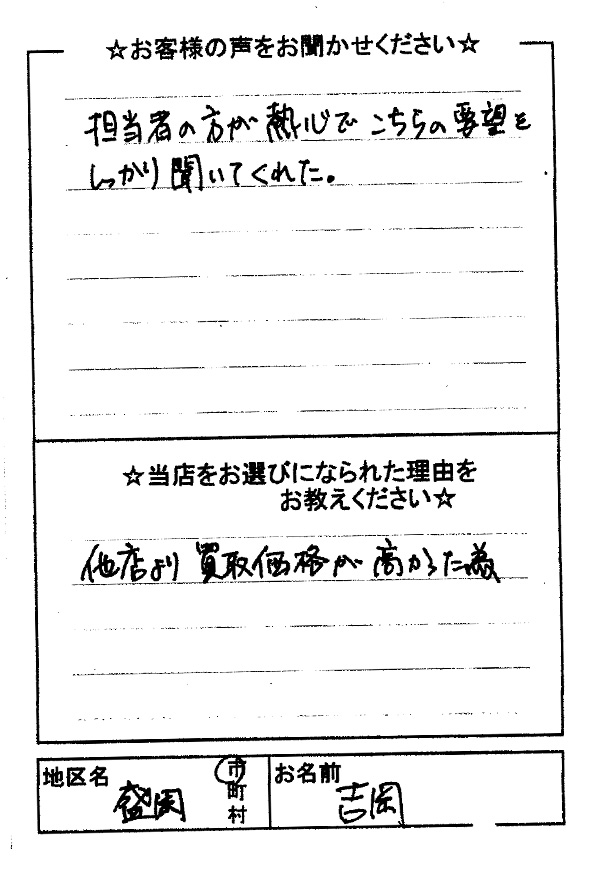 ☆お客様の声をお聞かせください☆
担当者の方が熱心でこちらの要望を
しっかり聞いてくれた。
☆当店をお選びになられた理由を
お教えください☆
他店より買取価格が高かった為
地区名
盛岡
市
町
村
お名前
吉岡